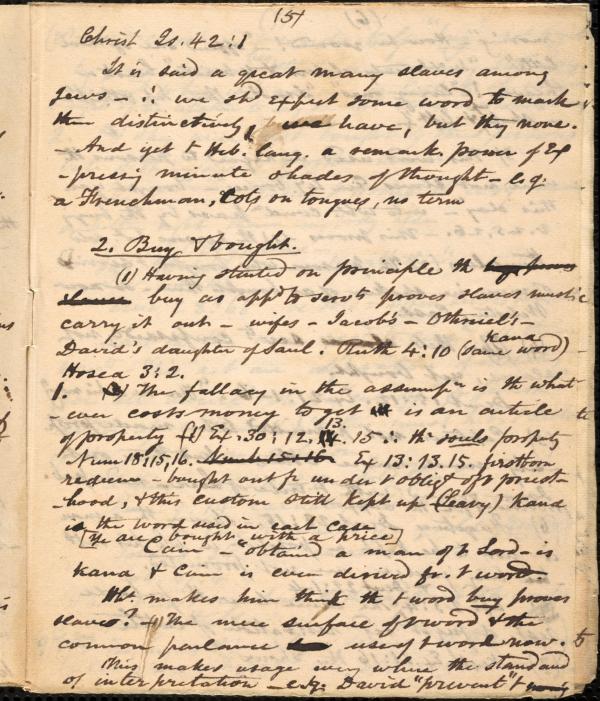 (5)
Christ Is. 42:1
It is said a great many slaves among
Jews – ∴ we shd expect some word to mark
them distinctively, we have, but they none.
– And yet t Heb. lang. a remark. power of Ex
-pressing minute shades of thought – e.g.
a Frenchman, on tongues, no term
2. Buy & bought.
(1) Having started on principle th
slaves buy as appd to servts proves slaves must
carry it out – wifes – Jacob's – Othniel's –
David's daughter of Saul. Ruth 4:10 (same word) Kana –
Hosea 3:2.
1. The fallacy in the assumpn is th what
-ever costs money to get is an article
of property Ex. 30:12, 13. 15 ∴ th souls propety
Num 18:15,16. Num 15:16 Ex 13:13.15. firstborn
redeem – bought out fr under t obligt of t priest-
hood, & this custom still kept up (Leavy) Kana
is the word used in each case
[Ye are bought with a price]
Cain – "obtained a man of t Lord – is
Kana & Cain is even derived fr. t word.
Wht makes him think th t word buy proves
slaves? – The mere surface of t word & the
common parlance use of t word now.
This makes usage every where the standard
of interpretation – e.g. David "prevent" t